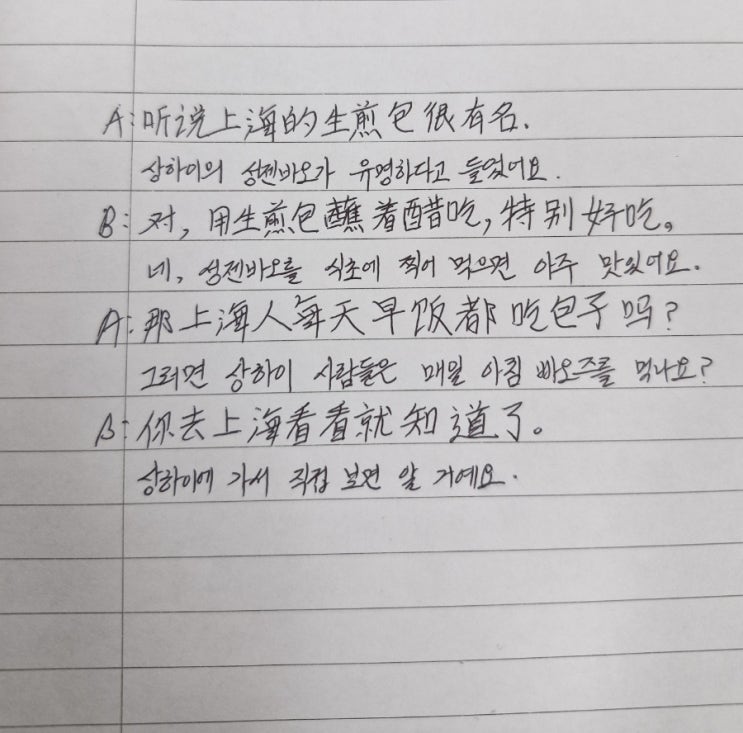 A:听说上海的生煎包很有名.
상하이의 성젠바오가 유명하다고 들었어요.
B:对,用生煎包蘸着醋吃,特别好吃。
네, 성젠바오를 식초에 찍어 먹으면 아주 맛있어요.
A:那上海人每天早饭都吃包子吗?
그러면 상하이 사람들은 매일 아침 빠오즈를 먹나요?
B:你去上海看看就知道了。
상하이에 가서 직접 보면 알 거예요.